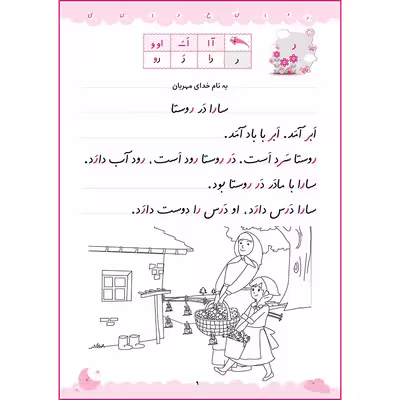 ر
آ ا اَ اُ او و
ر را رَ رو
به نام خدای مهربان
سارا دَر روستا
اَبر آمَد. اَبر با باد آمَد.
روستا سَرد اَست. دَر روستا رود اَست، رود آب دارَد.
سارا با مادَر دَر روستا بود.
سارا دَرس دارَد. او دَرس را دوست دارَد.
۹